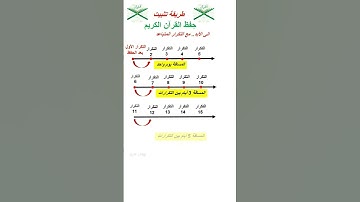 طريقة تثبيت
حفظ القرآن الكريم
الى الأبد .. مع التكرار المتباعد
التكرار الأول بعد الحفظ
التكرار 2
التكرار 3
التكرار 4
التكرار 5
المسافة يوم واحد
التكرار 6
التكرار 7
التكرار 8
التكرار 9
التكرار 10
المسافة 3 أيام بين التكرارات
التكرار 11
التكرار 12
التكرار 13
التكرار 14
التكرار 15
أيام بين التكرارات